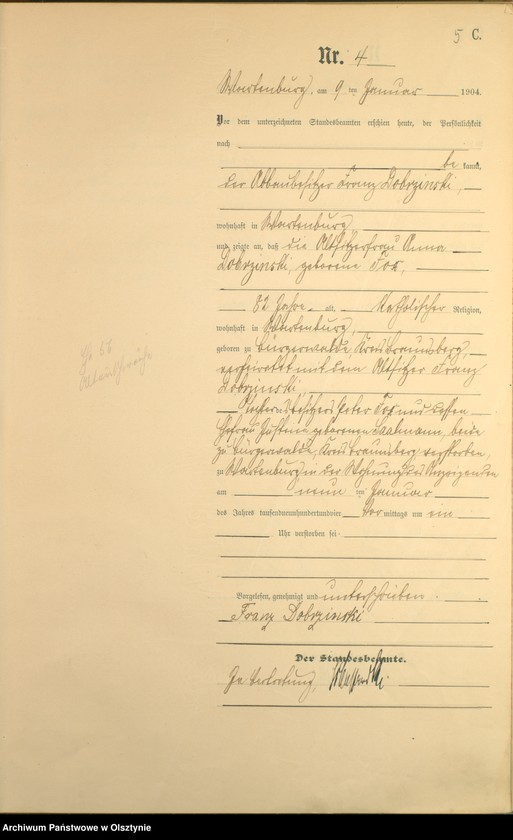 5 C.
Nr. 4
Wartenburg, am 9 ten Januar 1904.
Vor dem unterzeichneten Standesbeamten erschien heute, der Persönlichkeit
nach
be kannt,
der Abbaubesitzer Franz Dobrzinski,
wohnhaft in Wartenburg
und zeigte an, daß die Altsitzerfrau Anna
Dobrzinski, geborene Fox,
82 Jahre alt, katholischer Religion,
wohnhaft in Wartenburg,
geboren zu Bürgerwalde, Kreis Braunsberg,
verheiratet mit dem Altsitzer Franz
Dobrzinski,
Peter Fox und dessen
Ehefrau Justina geborenen Saatmann, beide
zu Bürgerwalde, Kreis Braunsberg verstorben,
zu Wartenburg in der Wohnung des Anzeigenden
am neun ten Januar
des Jahres tausendneunhundertundvier Vor mittags um ein
Uhr verstorben sei
Vorgelesen, genehmigt und unterschrieben.
Franz Dobrzinski
Der Standesbeamte.
In Vertretung,
Archiwum Państwowe w Olsztynie